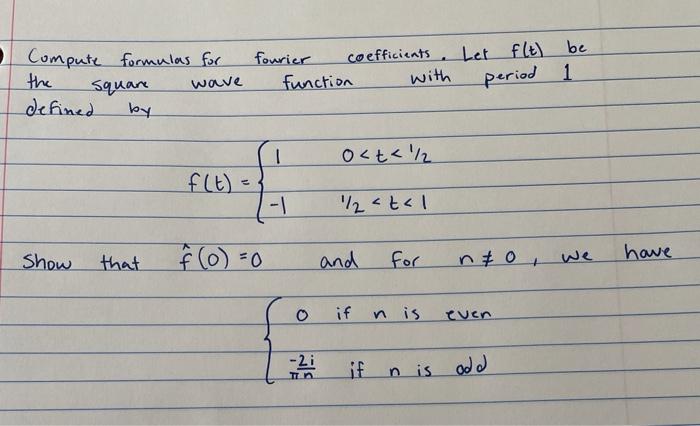 Compute formulas for fourier coefficients. Let f(t) be
the square wave function with period 1
defined by
f(t) = { 1 0 < t < 1/2
-1 1/2 < t < 1
Show that f̂(0) = 0 and for n ≠ 0, we have
{ 0 if n is even
-2i/πn if n is odd